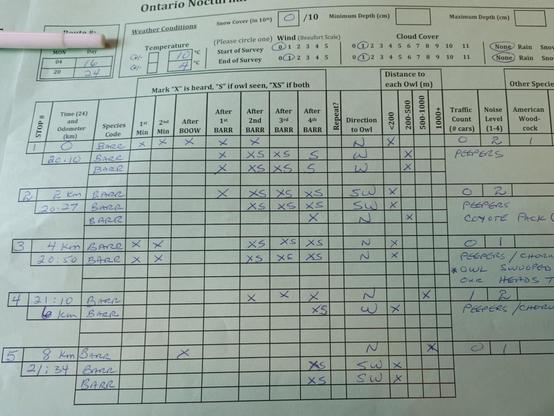 Ontario Nocturnal
Snow Cover (in 10th) 0 /10 Minimum Depth (cm) Maximum Depth (cm)
Weather Conditions
(Please circle one) Wind (Beaufort Scale) Cloud Cover
Temperature
Start of Survey 0 1 2 3 4 5 0 1 2 3 4 5 6 7 8 9 10 11 None Rain Snow
End of Survey 0 1 2 3 4 5 0 1 2 3 4 5 6 7 8 9 10 11 None Rain
MON Day
04 16
20 24
10 °C
4 °C
Mark "X" is heard, "S" if owl seen, "XS" if both
Distance to each Owl (m)
Other Species
STOP # Time (24) and Odometer (km) Species Code 1st Min 2nd Min After BOOW After 1st BARR After 2nd BARR After 3rd BARR After 4th BARR Repeat? Direction to Owl <200 200-500 500-1000 1000+ Traffic Count (# cars) Noise Level (1-4) American Wood-cock
1 0 BARR X X X X X N X 0 2 1
20:10 BARR X XS XS S W X PEEPERS
BARR X XS XS S W X
2 2 km BARR X XS XS XS SW X 0 2
20:27 BARR XS XS XS SW X PEEPERS
BARR X N X COYOTE PACK
3 4 km BARR X X XS XS XS N X 0 1
20:50 BARR X X XS XS XS N X PEEPERS /
* OWL SWOOPED
OUR HEADS
4 21:10 BARR X X X N X 1 2
6 km BARR XS W X PEEPERS /
5 8 km BARR X N X 0 1
21:34 BARR XS SW X
BARR XS SW X